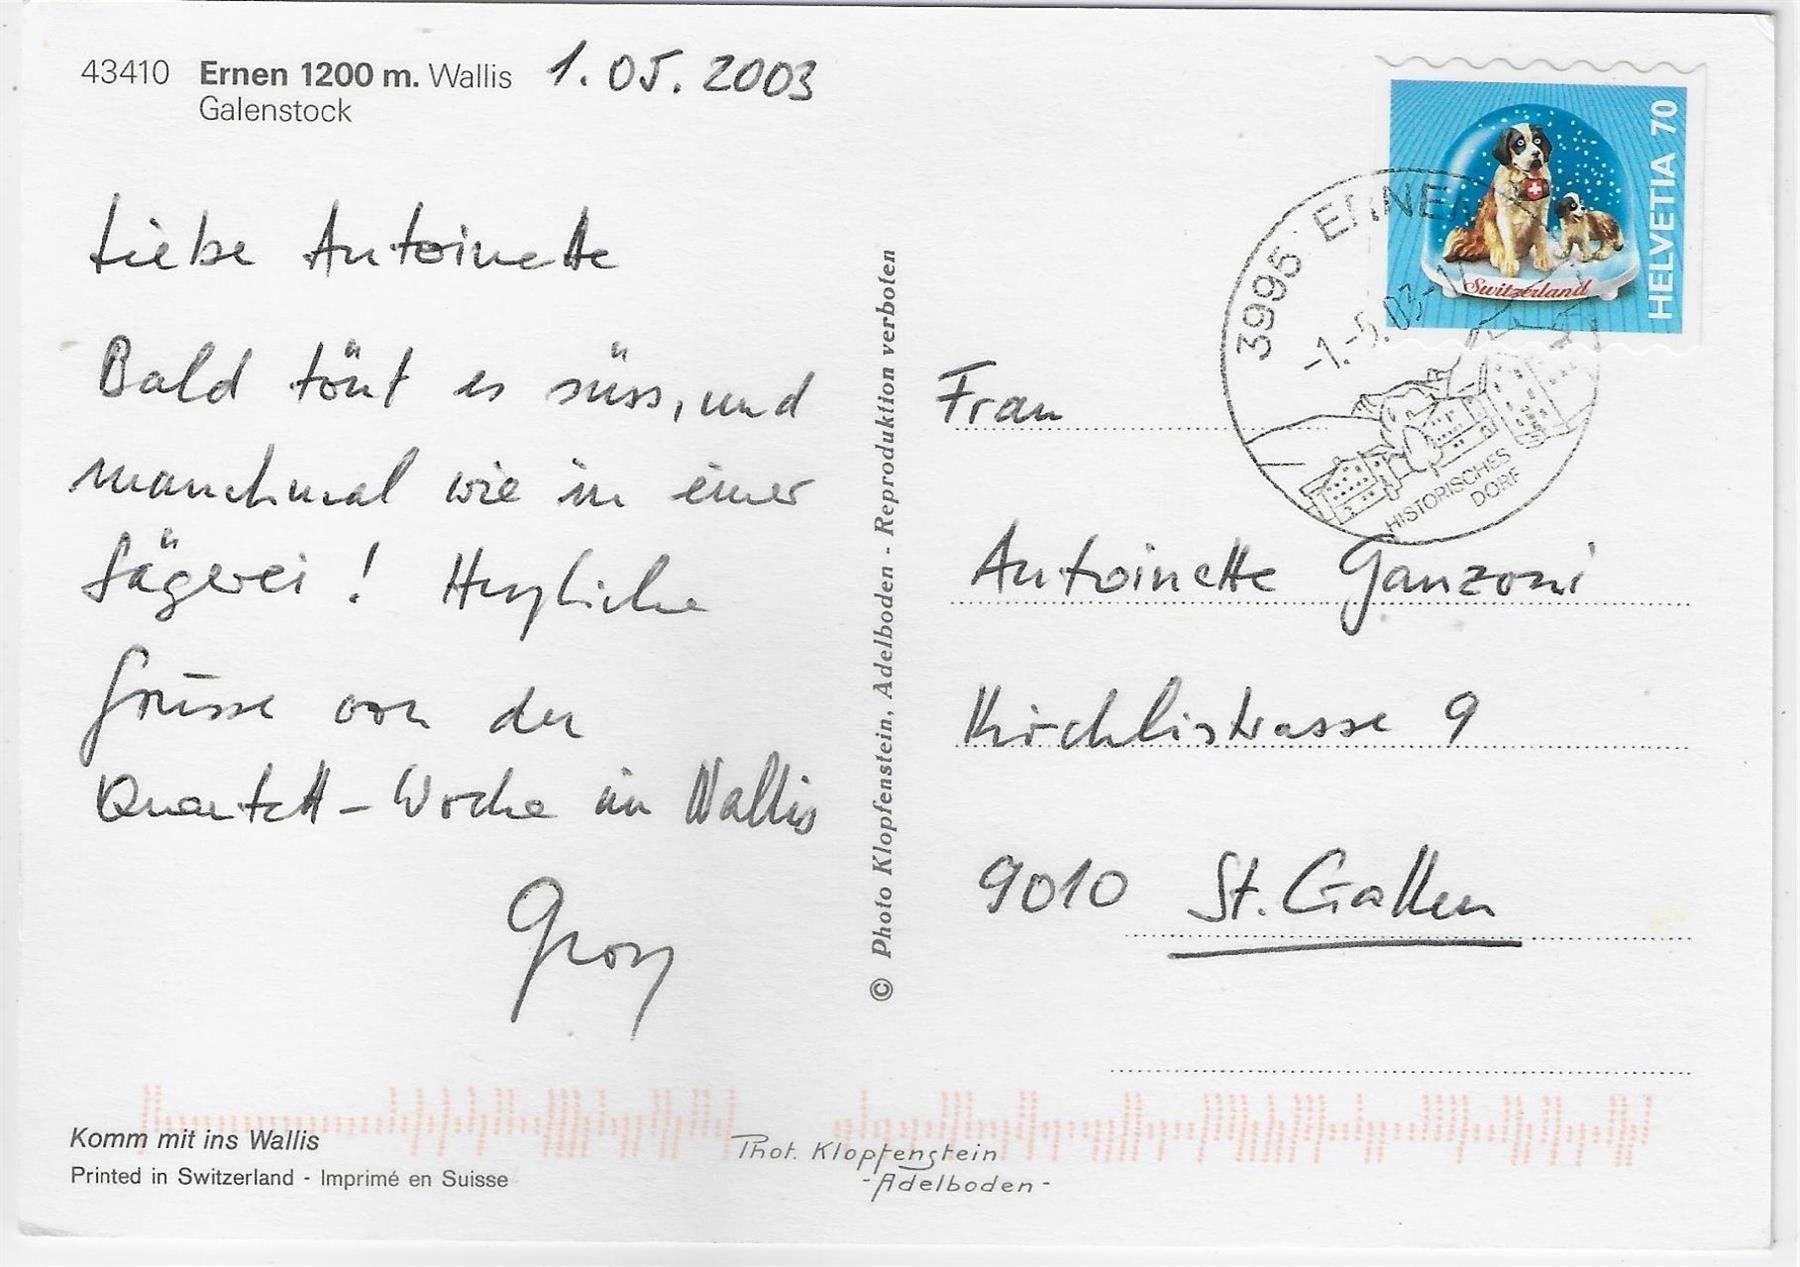 43410 Ernen 1200 m. Wallis 1.05.2003
Galenstock
Liebe Antoinette
Bald tönt es süss, und
manchmal wie in einer
Sägerei! Herzliche
Grüsse von der
Quartett-Woche im Wallis
HELVETIA 70
Switzerland
3995 ERNEN
-1.-5.03-
HISTORISCHES
DORF
Frau
Antoinette Ganzoni
Kirchlistrasse 9
9010 St. Gallen
© Photo Klopfenstein, Adelboden - Reproduktion verboten
Komm mit ins Wallis
Printed in Switzerland - Imprimé en Suisse
Phot. Klopfenstein
-Adelboden-